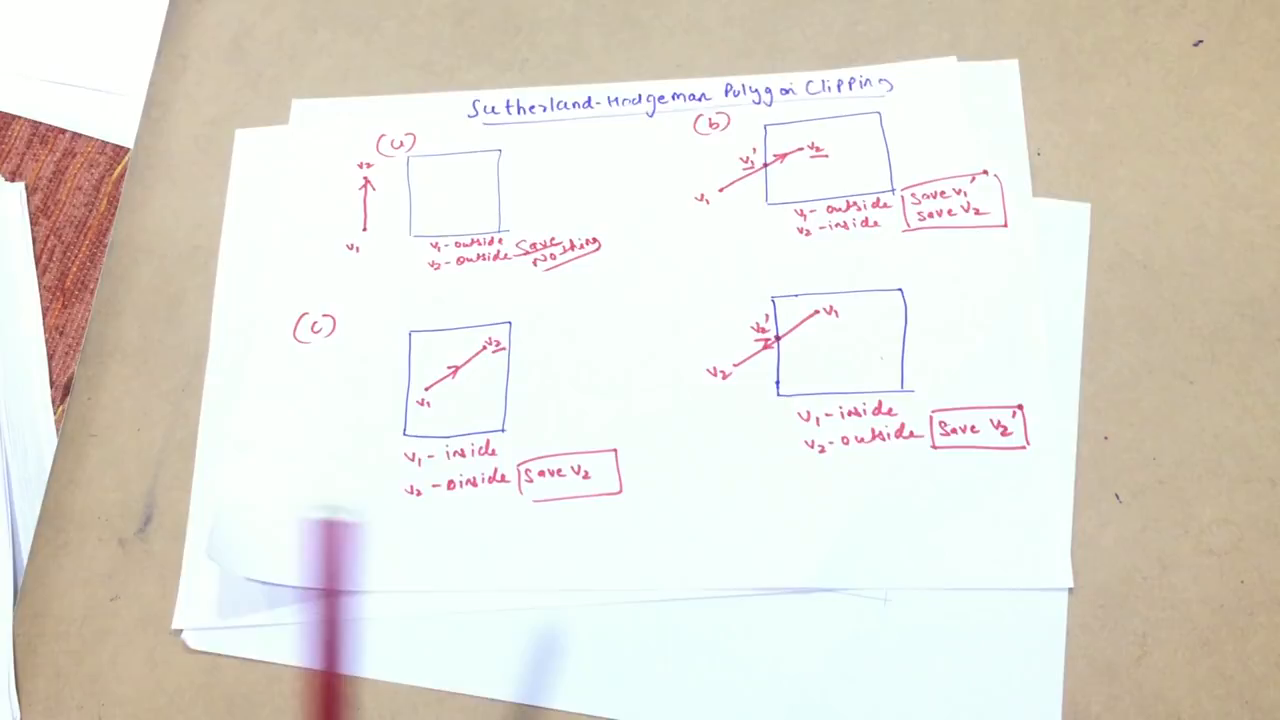 Sutherland-Hodgeman Polygon Clipping
(a)
v2
v1
v1-outside
v2-outside Save
Nothing
(b)
v1'
v2
v1
v1-outside
v2-inside
Save v1'
Save v2
(c)
v2
v1
v1-inside
v2-inside
Save v2
v2'
v1
v2
v1-inside
v2-outside
Save v2'